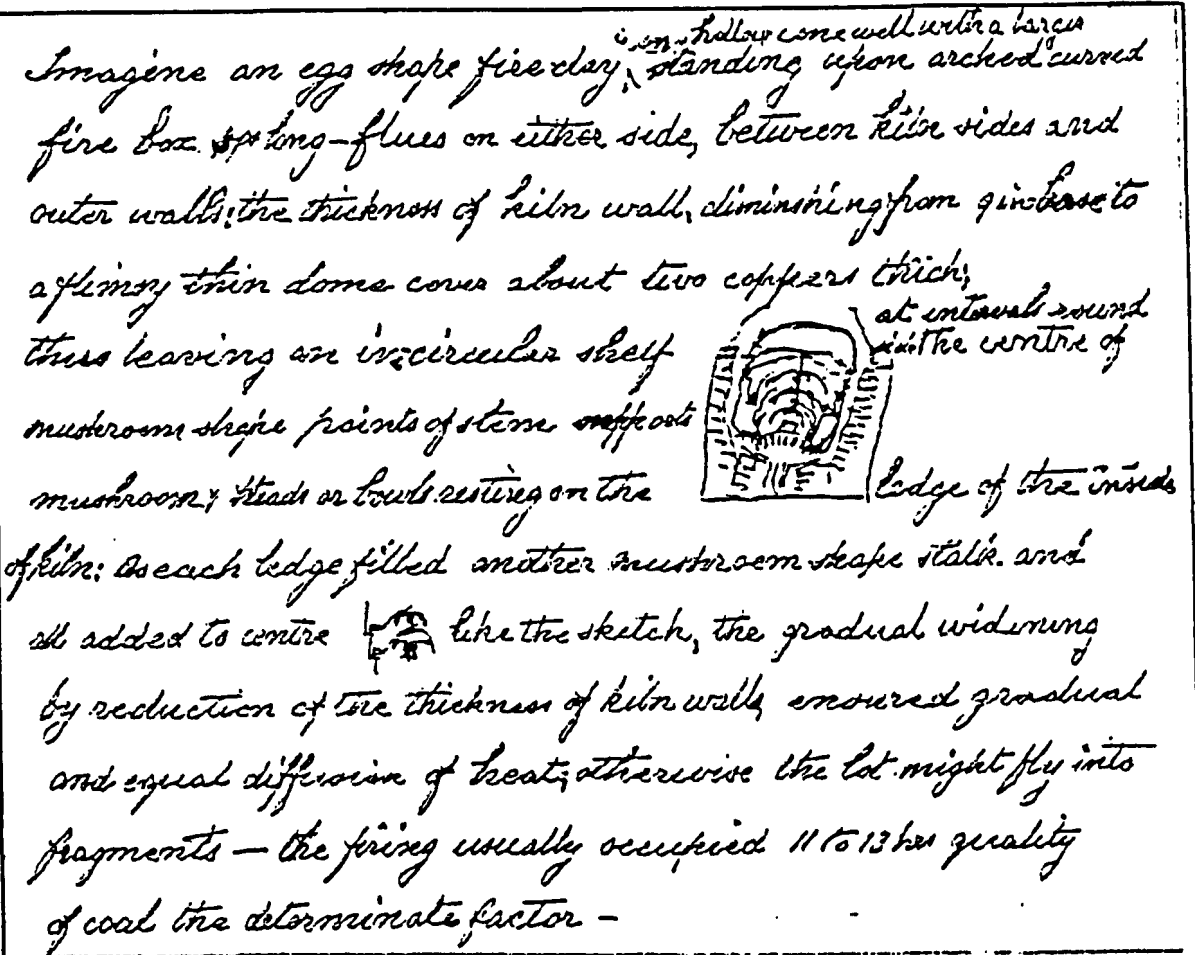 hollow cone well with a larger
Imagine an egg shape fire clay, standing upon arched curved
fire box long-flues on either side, between kiln sides and
outer walls: the thickness of kiln wall, diminishing from 9 in base to
a flimsy thin dome cover about two coppers thick;
at intervals round
thus leaving an circular shelf
in the centre of
mushroom shape points of stem supports
mushroom; heads or bowls resting on the ledge of the inside
of kiln: as each ledge filled another mushroom shape stalk. and
all added to centre like the sketch, the gradual widening
by reduction of the thickness of kiln walls, ensured gradual
and equal diffusion of heat; otherwise the lot might fly into
fragments — the firing usually occupied 11 to 13 hrs quality
of coal the determinate factor —